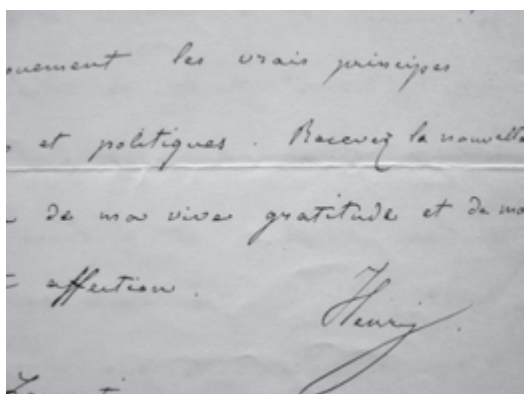 les vrais principes
et politiques. Recevez la nouvelle
de ma vive gratitude et de ma
affection.
Henri